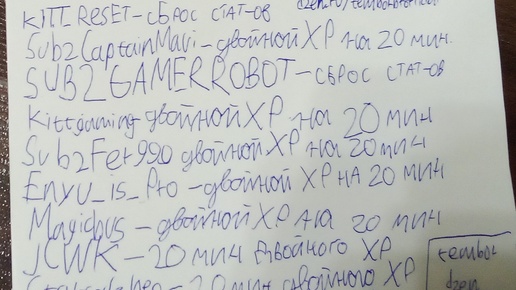 KITT_RESET-СБРОС СТАТ-ОВ
Sub2CaptainMaui-двойной XP на 20 мин.
SUB2GAMERROBOT-СБРОС СТАТ-ОВ
Kittgaming-двойной XP на 20 мин
Sub2Fer999 двойной XP на 20 мин
Enyu_is_Pro-двойной XP на 20 мин
Magicbus-двойной XP на 20 мин
JCWK-20 мин двойного XP
20 мин двойного XP
tembor
dzen